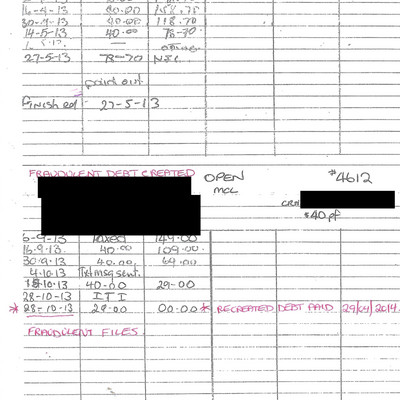 40.00 158.70
30-4-13 40.00 118.70
14-5-13 40.00 78-70
27-5-13 78-70 NIL
paid out
finished 27-5-13
FRAUDULENT DEBT CREATED OPEN #4612
MCL
$40 pf
6-9-13 faxed 149.00
16.9.13. 40.00 109.00
30.9.13 40.00 69.00
4.10.13 Txt msg sent.
15.10.13 40.00 29-00
28-10-13 ITI
* 28-10-13 29-00 00.00 * RECREATED DEBT PAID 29/04/2014
FRAUDULENT FILES